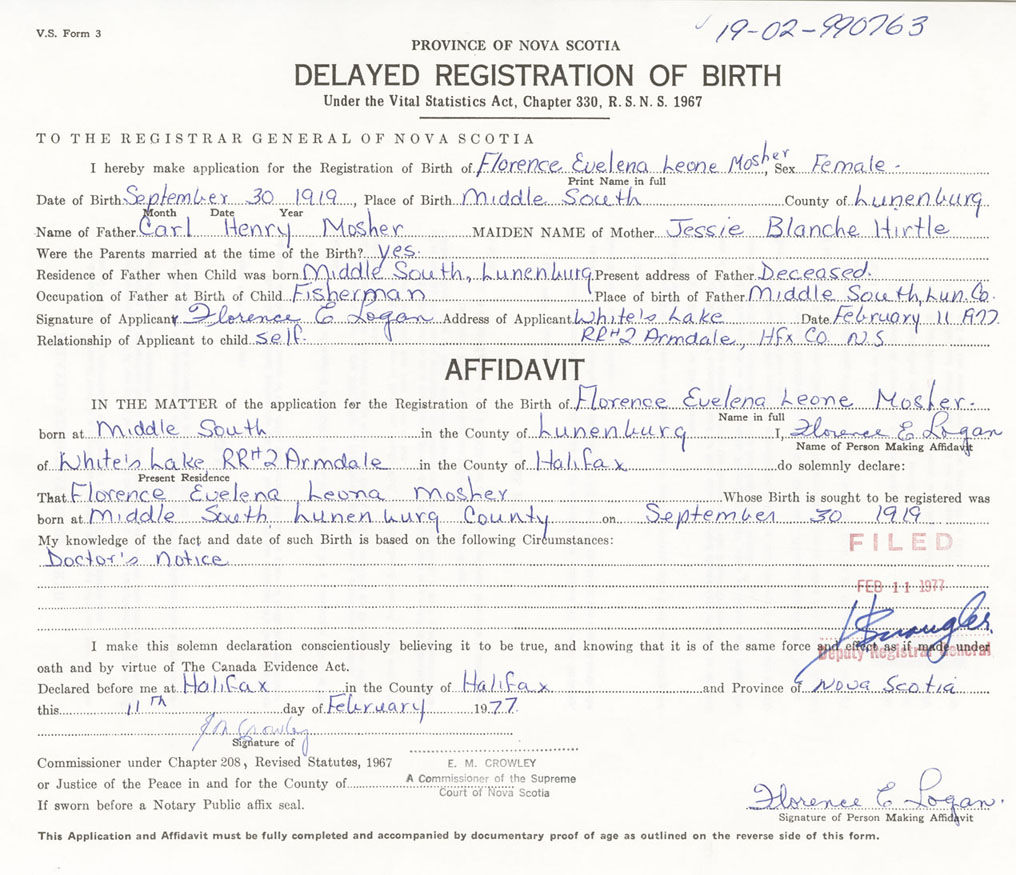 V.S. Form 3
19-02-990763
PROVINCE OF NOVA SCOTIA
DELAYED REGISTRATION OF BIRTH
Under the Vital Statistics Act, Chapter 330, R. S. N. S. 1967
TO THE REGISTRAR GENERAL OF NOVA SCOTIA
I hereby make application for the Registration of Birth of Florence Evelena Leone Mosher, Sex Female -
Print Name in full
Date of Birth September 30 1919, Place of Birth Middle South County of Lunenburg
Month Date Year
Name of Father Carl Henry Mosher MAIDEN NAME of Mother Jessie Blanche Hirtle
Were the Parents married at the time of the Birth? yes.
Residence of Father when Child was born Middle South, Lunenburg Present address of Father Deceased.
Occupation of Father at Birth of Child Fisherman Place of birth of Father Middle South, Lun. Co.
Signature of Applicant Florence E Logan Address of Applicant White's Lake Date February 11 1977.
Relationship of Applicant to child self. RR#2 Armdale, Hfx Co. N.S
AFFIDAVIT
IN THE MATTER of the application for the Registration of the Birth of Florence Evelena Leone Mosher.
Name in full
born at Middle South in the County of Lunenburg I, Florence E Logan
Name of Person Making Affidavit
of White's Lake RR#2 Armdale in the County of Halifax do solemnly declare:
Present Residence
That Florence Evelena Leona Mosher Whose Birth is sought to be registered was
born at Middle South, Lunenburg County on September 30 1919
My knowledge of the fact and date of such Birth is based on the following Circumstances:
FILED
Doctor's notice
FEB 11 1977
I make this solemn declaration conscientiously believing it to be true, and knowing that it is of the same force and effect as if made under
Deputy Registrar General
oath and by virtue of The Canada Evidence Act.
Declared before me at Halifax in the County of Halifax and Province of Nova Scotia
this 11th day of February 1977
Crowley
Signature of
Commissioner under Chapter 208, Revised Statutes, 1967
E. M. CROWLEY
or Justice of the Peace in and for the County of
A Commissioner of the Supreme
Court of Nova Scotia
If sworn before a Notary Public affix seal.
Florence E Logan.
Signature of Person Making Affidavit
This Application and Affidavit must be fully completed and accompanied by documentary proof of age as outlined on the reverse side of this form.